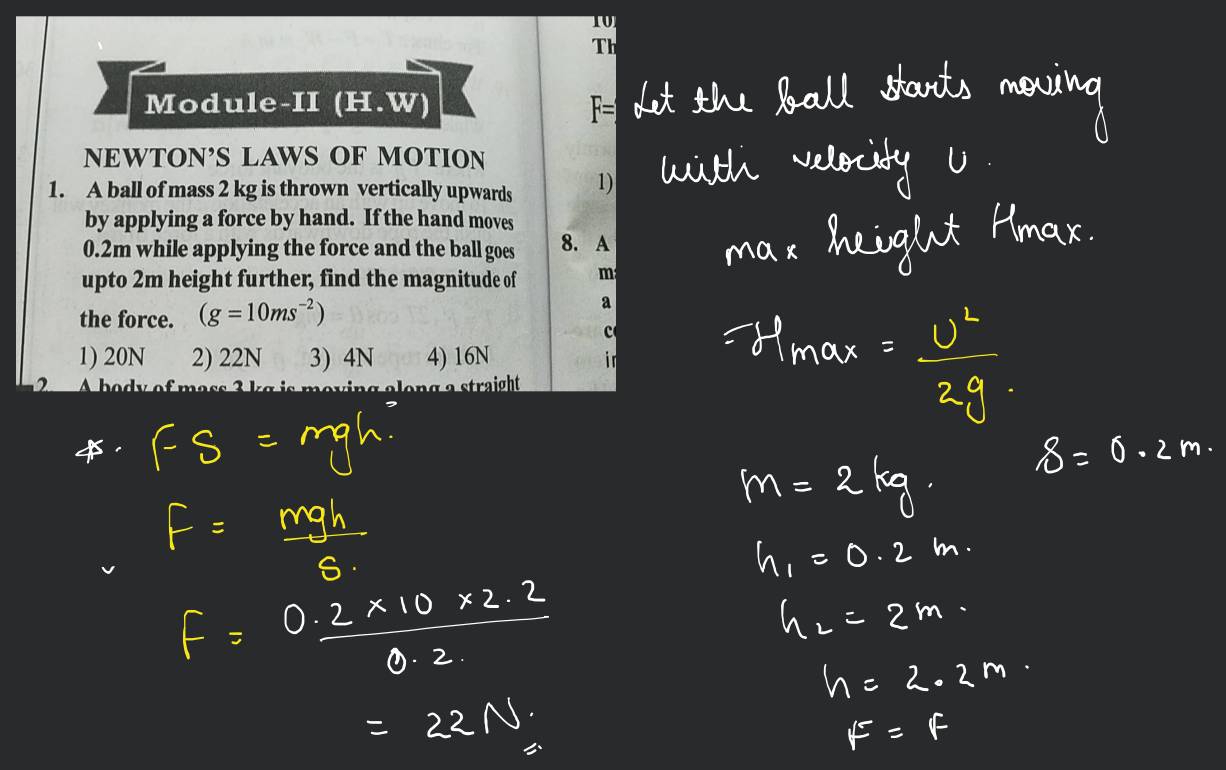 Module-II (H.W)
NEWTON'S LAWS OF MOTION
1. A ball of mass 2 kg is thrown vertically upwards
by applying a force by hand. If the hand moves
0.2m while applying the force and the ball goes
upto 2m height further, find the magnitude of
the force. (g = 10ms⁻²)
1) 20N 2) 22N 3) 4N 4) 16N
2. A body of mass 3 kg is moving along a straight
10.
Th
F=
1)
8. A
m
a
co
in
Let the ball starts moving
with velocity U.
max height Hmax.
=Hmax = U²/2g.
m = 2 kg. S = 0.2 m.
h₁ = 0.2 m.
h₂ = 2 m.
h = 2.2 m.
F = F
FS = mgh.
F = mgh/S.
F = 0.2 × 10 × 2.2/0.2.
= 22 N.